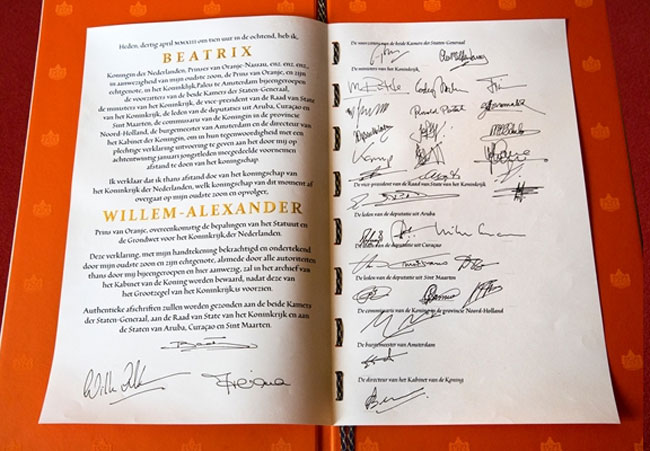 Heden, dertig april MMXIII om tien uur in de ochtend, heb ik,
BEATRIX
Koningin der Nederlanden, Prinses van Oranje-Nassau, enz. enz. enz.,
in aanwezigheid van mijn oudste zoon, de Prins van Oranje, en zijn
echtgenote, in het Koninklijk Paleis te Amsterdam bijeengeroepen
de voorzitters van de beide Kamers der Staten-Generaal,
de ministers van het Koninkrijk, de vice-president van de Raad van State
van het Koninkrijk, de leden van de deputaties uit Aruba, Curaçao en
Sint Maarten, de commissaris van de Koningin in de provincie
Noord-Holland, de burgemeester van Amsterdam en de directeur van
het Kabinet der Koningin, om in hun tegenwoordigheid met een
plechtige verklaring uitvoering te geven aan het door mij op
achtentwintig januari jongstleden meegedeelde voornemen
afstand te doen van het koningschap.
Ik verklaar dat ik thans afstand doe van het koningschap van
het Koninkrijk der Nederlanden, welk koningschap van dit moment af
overgaat op mijn oudste zoon en opvolger,
WILLEM-ALEXANDER
Prins van Oranje, overeenkomstig de bepalingen van het Statuut en
de Grondwet voor het Koninkrijk der Nederlanden.
Deze verklaring, met mijn handtekening bekrachtigd en ondertekend
door mijn oudste zoon en zijn echtgenote, alsmede door alle autoriteiten
thans door mij bijeengeroepen en hier aanwezig, zal in het archief van
het Kabinet van de Koning worden bewaard, nadat deze van
het Grootzegel van het Koninkrijk is voorzien.
Authentieke afschriften zullen worden gezonden aan de beide Kamers
der Staten-Generaal, aan de Raad van State van het Koninkrijk en aan
de Staten van Aruba, Curaçao en Sint Maarten.
De voorzitters van de beide Kamers der Staten-Generaal
De ministers van het Koninkrijk,
De vice-president van de Raad van State van het Koninkrijk
De leden van de deputatie uit Aruba
De leden van de deputatie uit Curaçao
De leden van de deputatie uit Sint Maarten
De commissaris van de Koningin in de provincie Noord-Holland
De burgemeester van Amsterdam
De directeur van het Kabinet van de Koning